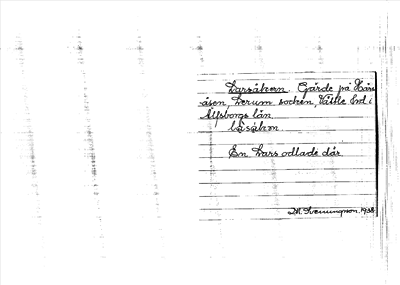 Larsåkern. Gärde på
åsen, Lerum socken, Vättle hd i
Älfsborgs län.
En Lars odlade där.
M. Svenungson. 1938